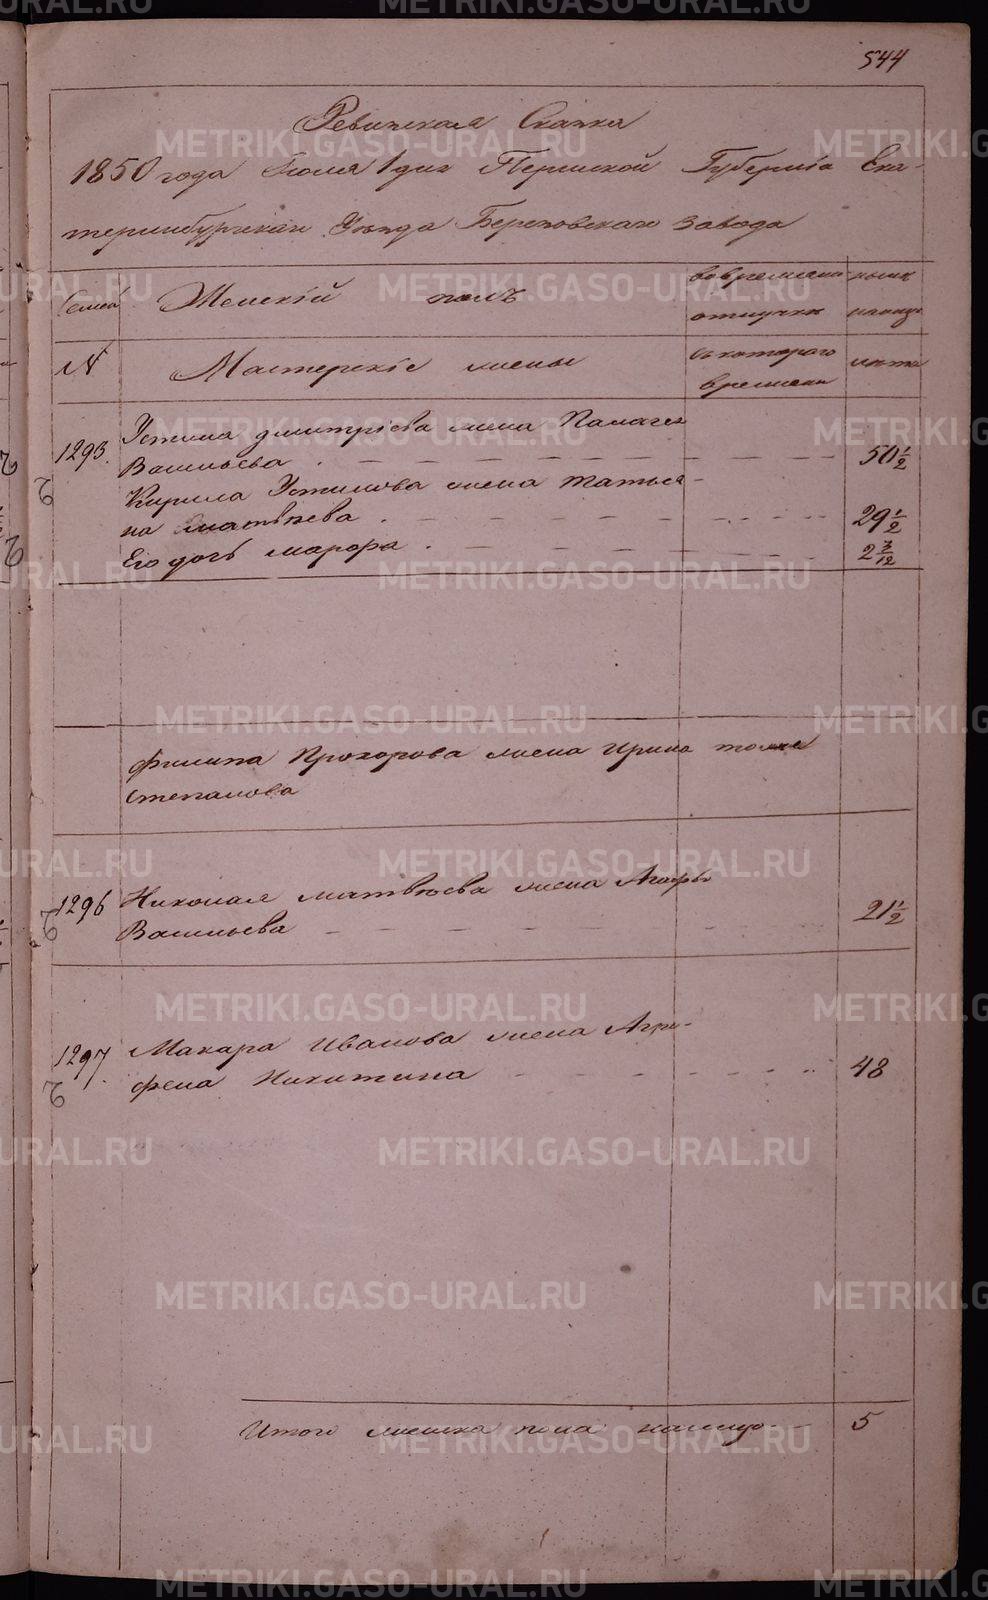 544
Ревизская Сказка
1850 года Июля 1 дня Пермской Губернiи Ека-
теринбургскаго Уезда Березовскаго завода
Семей Женскiй полъ во временной ныне
отлучке налицо
N Мастерскiе жены съ котораго лета
времени
1293. Устина дмитрiева жена Палагея
Васильева 50 1/2
Кирила Устинова жена Татья-
на матвеева 29 1/2
Его дочь мавра 2 7/12
филипа Прохорова жена Ирина тоже
степанова
1296 Николая матвеева жена Агафья
Васильева 21 1/2
1297. Макара Иванова жена Агри-
фена Никитина 48
Итого женска пола налицо 5
METRIKI.GASO-URAL.RU